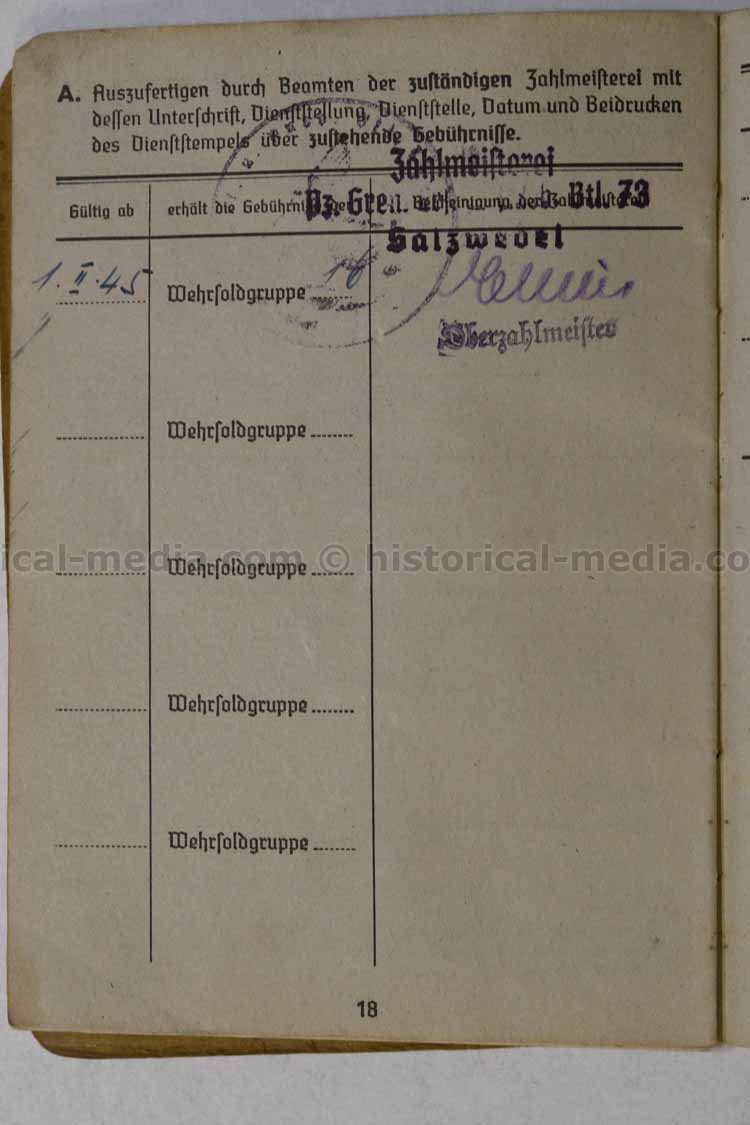 A. Auszufertigen durch Beamten der zuständigen Zahlmeisterei mit
dessen Unterschrift, Dienststellung, Dienststelle, Datum und Beidrucken
des Dienststempels über zustehende Gebührnisse.
Zahlmeisterei
Pz. Gren. Btl. 73
Salzwedel
Gültig ab
erhält die
1. II. 45
Wehrsoldgruppe 16
Oberzahlmeister
Wehrsoldgruppe
Wehrsoldgruppe
Wehrsoldgruppe
Wehrsoldgruppe
ical-media.com © historical-media.co
18